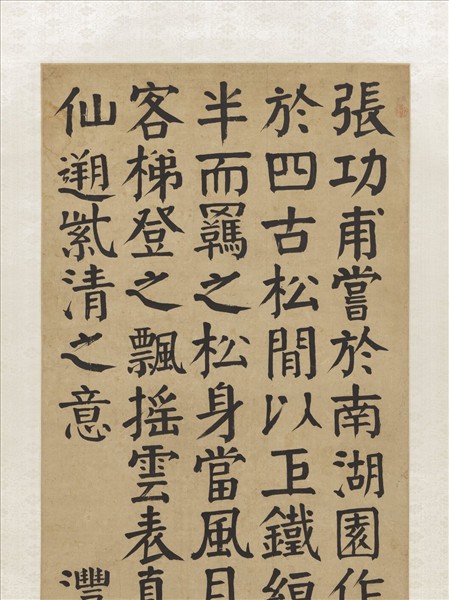 張功甫嘗於南湖園作
於四古松閒以巨鐵絙
半而羈之松身當風月
客梯登之飄摇雲表真
仙遡紫清之意